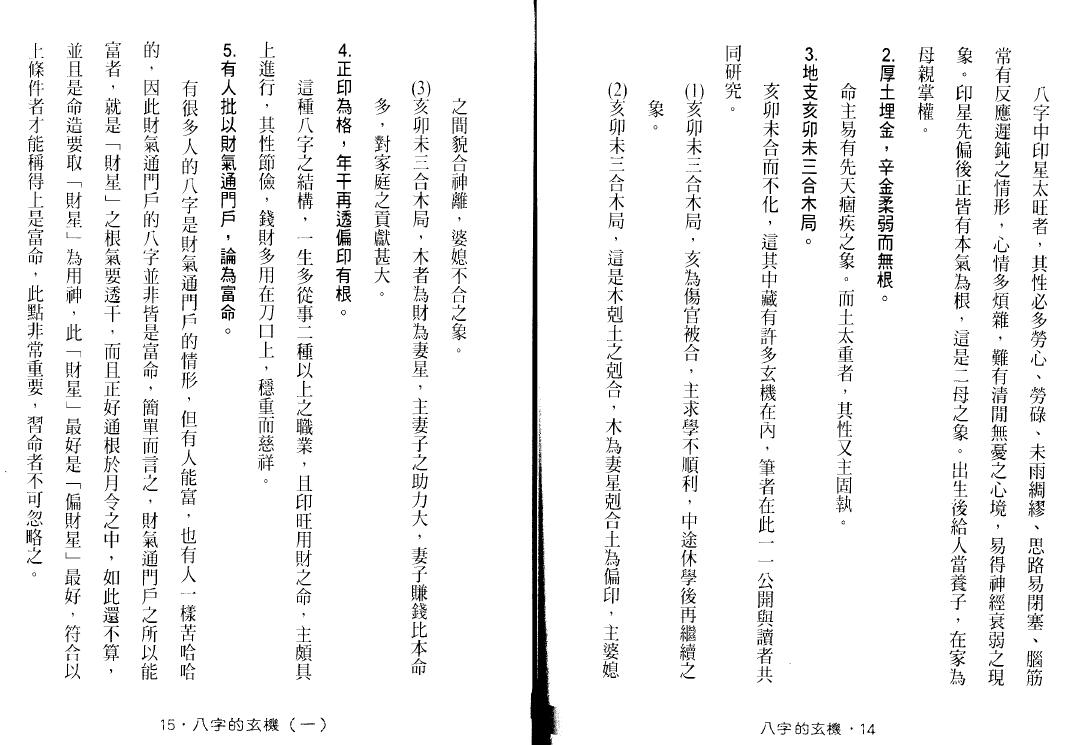 八字中印星太旺者，其性必多勞心、勞碌、未雨綢繆、思路易閉塞、腦筋
常有反應遲鈍之情形，心情多煩雜，難有清閒無憂之心境，易得神經衰弱之現
象。印星先偏後正皆有本氣為根，這是二母之象。出生後給人當養子，在家為
母親掌權。
2.厚土埋金，辛金柔弱而無根。
命主易有先天痼疾之象。而土太重者，其性又主固執。
3.地支亥卯未三合木局。
亥卯未合而不化，這其中藏有許多玄機在內，筆者在此一一公開與讀者共
同研究。
(1)亥卯未三合木局，亥為傷官被合，主求學不順利，中途休學後再繼續之
象。
(2)亥卯未三合木局，這是木剋土之剋合，木為妻星剋合土為偏印，主婆媳
八字的玄機・14
之間貌合神離，婆媳不合之象。
(3)亥卯未三合木局，木者為財為妻星，主妻子之助力大，妻子賺錢比本命
多，對家庭之貢獻甚大。
4.正印為格，年干再透偏印有根。
這種八字之結構，一生多從事二種以上之職業，且印旺用財之命，主頗具
上進行，其性節儉，錢財多用在刀口上，穩重而慈祥。
5.有人批以財氣通門戶，論為富命。
有很多人的八字是財氣通門戶的情形，但有人能富，也有人一樣苦哈哈
的，因此財氣通門戶的八字並非皆是富命，簡單而言之，財氣通門戶之所以能
富者，就是「財星」之根氣要透干，而且正好通根於月令之中，如此還不算，
並且是命造要取「財星」為用神，此「財星」最好是「偏財星」最好，符合以
上條件者才能稱得上是富命，此點非常重要，習命者不可忽略之。
15・八字的玄機（一）